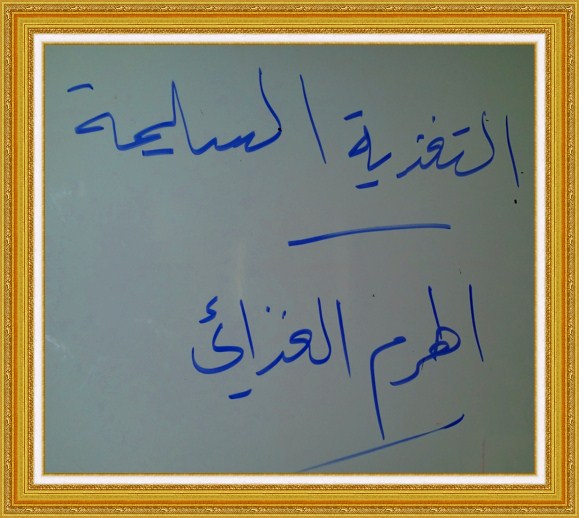 التغذية السليمة
الهرم الغذائي